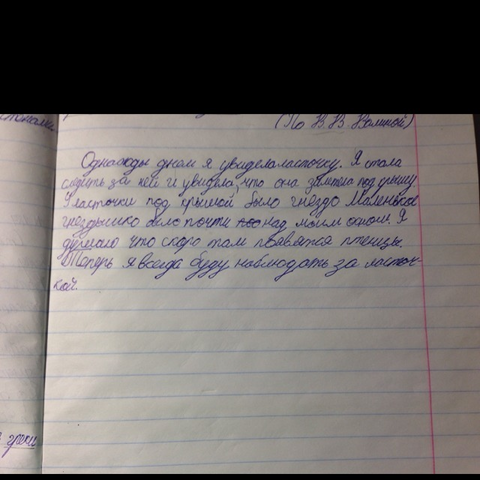 (По В. В. Волиной)
Однажды днем я увидела ласточку. Я стала
следить за ней и увидела, что она залетела под крышу.
У ласточки под крышой было гнёздо. Маленькое
гнездышко было почти над моим окном. Я
думаю что скоро там появятся птенцы.
Теперь я всегда буду наблюдать за ласточ-
кой.
греки